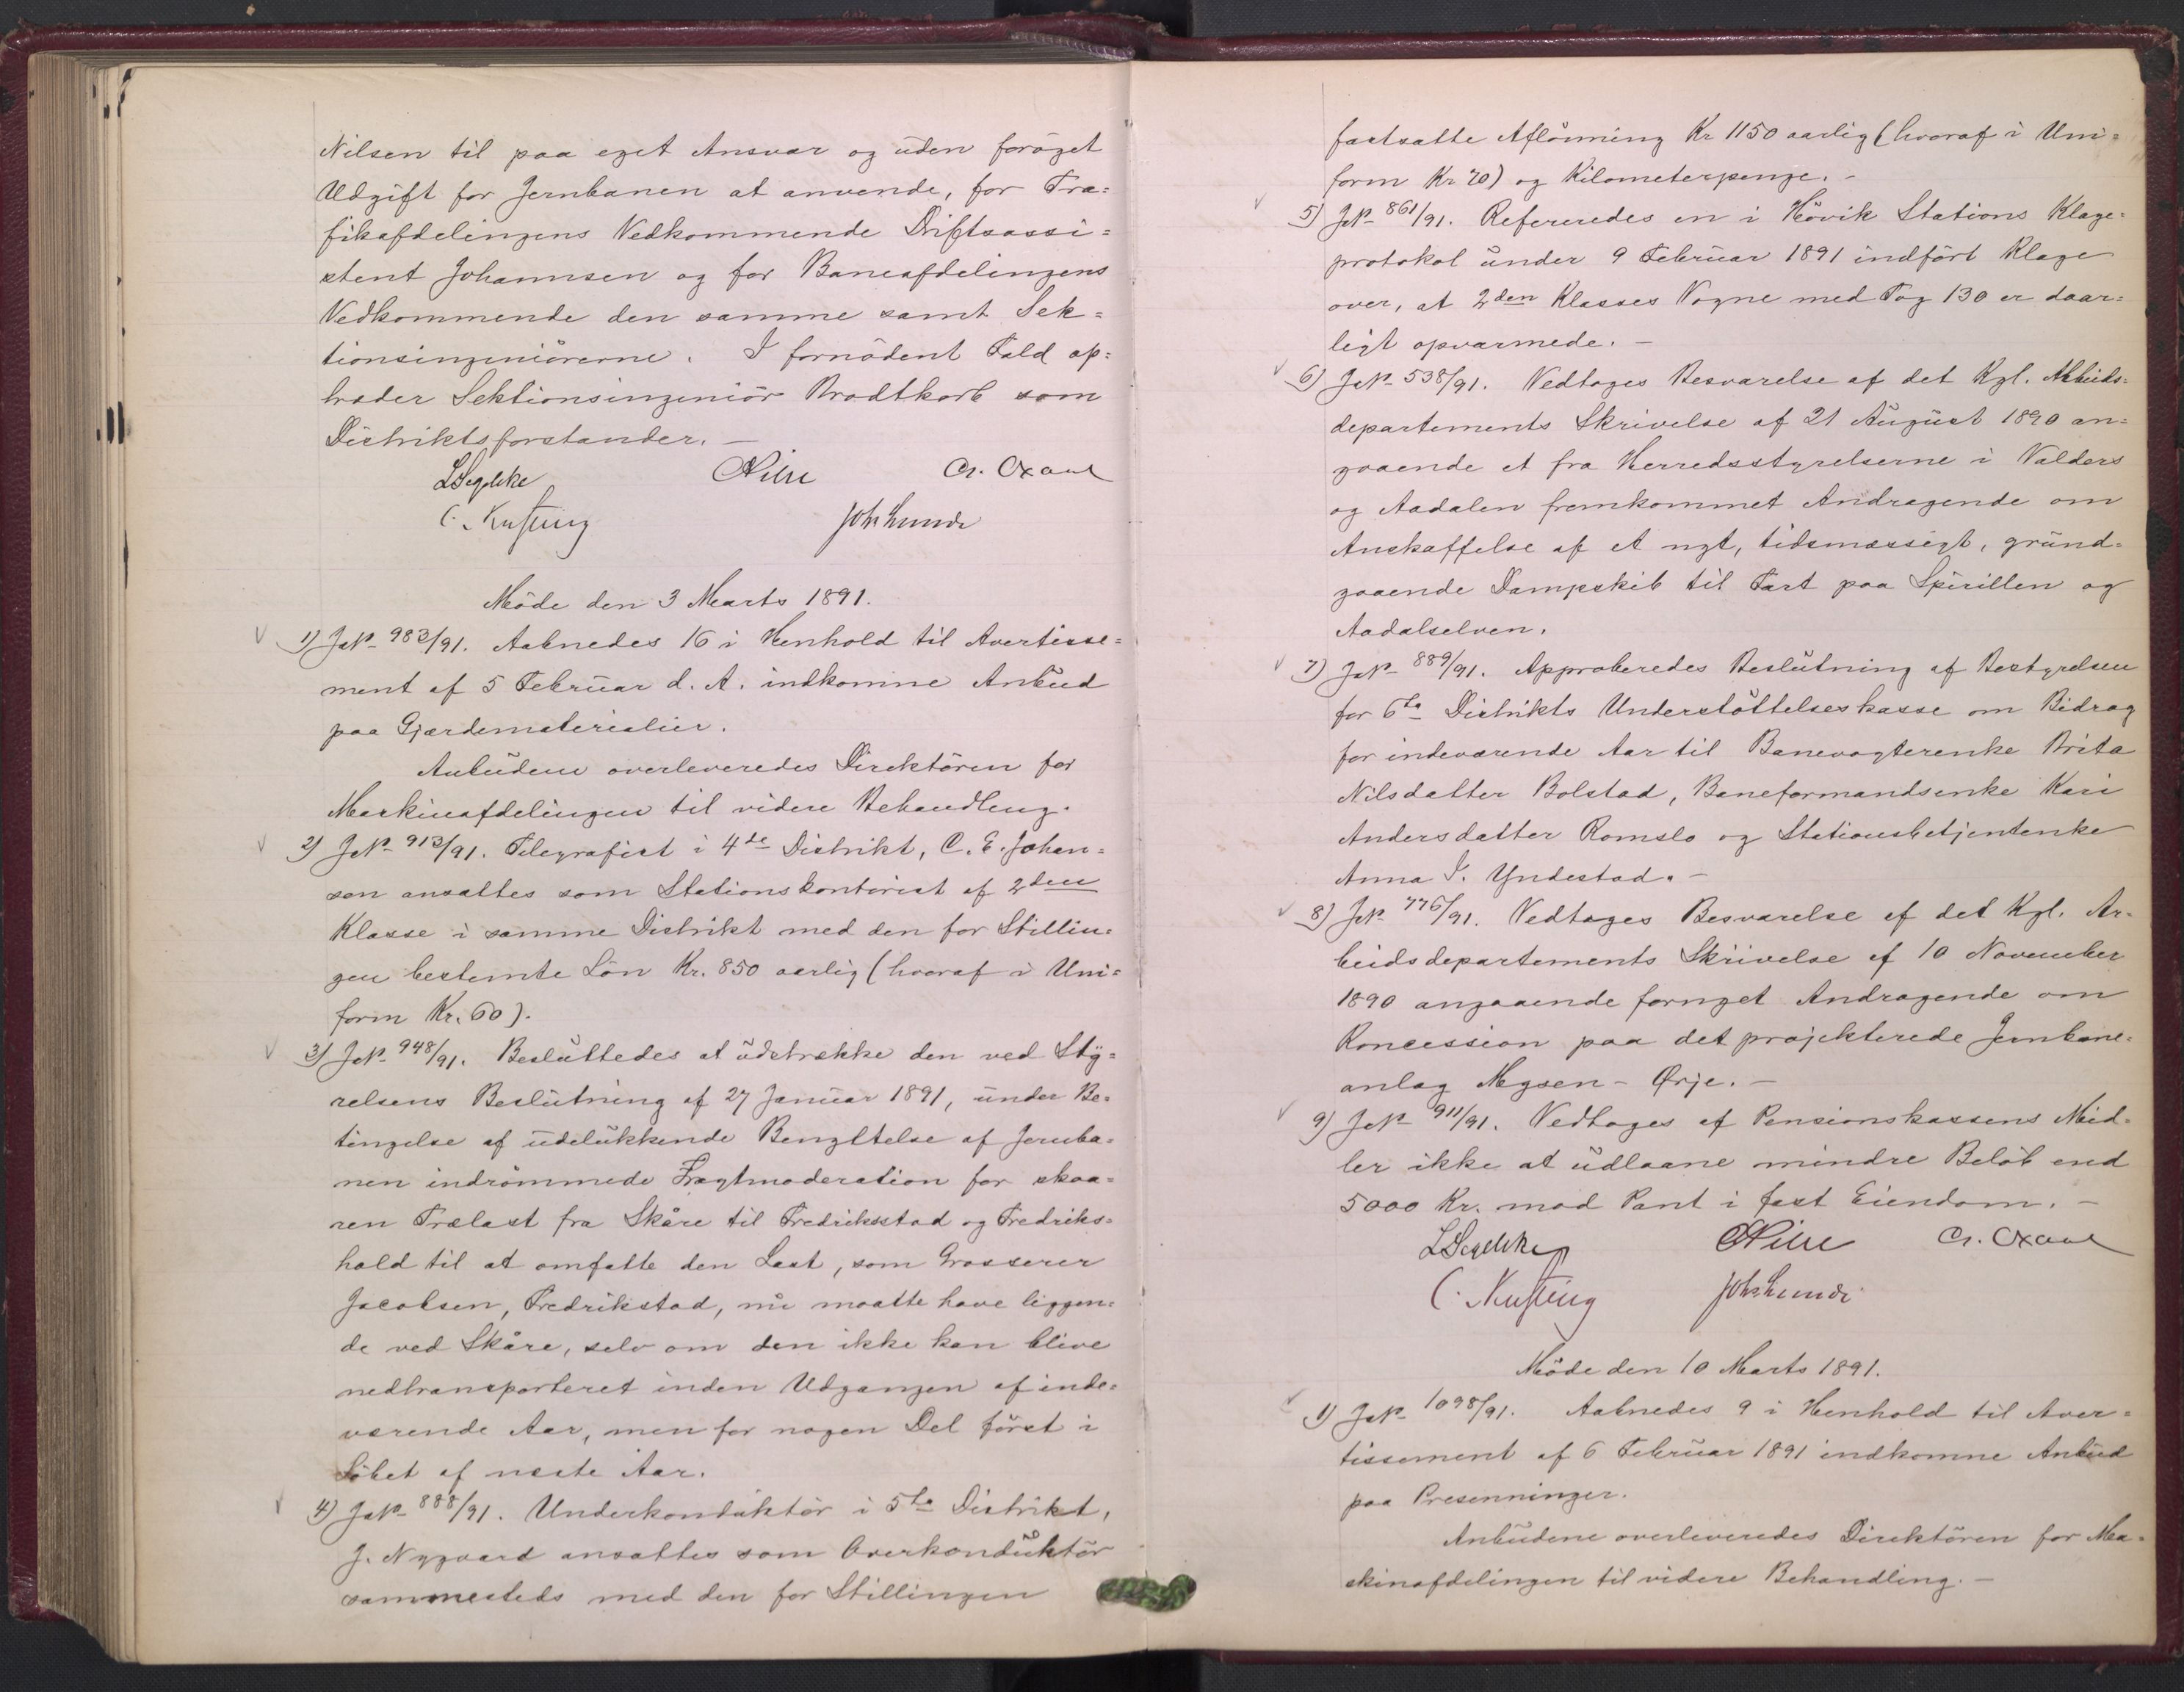 Nilsen til paa eget Ansvar og uden forøget
Udgift for Jernbanen at anvende, for Tra=
fikafdelingens Vedkommende Driftsassi=
stent Johannsen og for Baneafdelingens
Vedkommende den samme samt Sek=
tionsingeniørerne. I fornødent Fald op=
træder Sektionsingeniør Brodtkorb som
Distriktsforstander. —
LSegelcke Pihl Cr. Oxaal
Joh. Lunde
Møde den 3 Marts 1891.
1) JNo 983/91. Aabnedes 16 i Henhold til Avertisse=
ment af 5 Februar d. A. indkomne Anbud
paa Gjærdematerialier.
Anbudene overleveredes Direktøren for
Maskinafdelingen til videre Behandling.
2) JNo 913/91. Telegrafist i 4de Distrikt, C. E. Johan=
sen ansattes som Stationskontorist af 2den
Klasse i samme Distrikt med den for Stillin=
gen bestemte Løn Kr. 850 aarlig (hvoraf i Uni=
form Kr. 60).
3) JNo 948/91. Besluttedes at udstrække den ved Sty=
relsens Beslutning af 27 Januar 1891, under Be=
tingelse af udelukkende Benyttelse af Jernba=
nen indrømmede Fragtmoderation for skaa=
ren Trælast fra Skåre til Fredriksstad og Fredriks=
hald til at omfatte den Last, som Grosserer
Jacobsen, Fredrikstad, nu maatte have liggen=
de ved Skåre, selv om den ikke kan blive
nedtransporteret inden Udgangen af inde=
værende Aar, men for nogen Del først i
Løbet af næste Aar.
4) JNo 888/91. Underkonduktør i 5te Distrikt,
J. Nygaard ansattes som Overkonduktør
sammesteds med den for Stillingen
fastsatte Aflønning Kr 1150 aarlig (hvoraf i Uni=
form Kr 70) og Kilometerpenge. —
5) JNo 861/91. Refereredes en i Høvik Stations Klage=
protokol under 9 Februar 1891 indført Klage
over, at 2den Klasses Vogne med Tog 130 er daar=
ligt opvarmede. —
6) JNo 538/91. Vedtoges Besvarelse af det Kgl. Arbeids=
departements Skrivelse af 21 August 1890 an=
gaaende et fra Herredsstyrelserne i Valders
og Aadalen fremkommet Andragende om
Anskaffelse af et nyt, tidsmæssigt, grund=
gaaende Dampskib til Fart paa Spirillen og
Aadalselven.
7) JNo 889/91. Approberedes Beslutning af Bestyrelsen
for 6te Distrikts Understøttelseskasse om Bidrag
for indeværende Aar til Banevogterenke Brita
Nilsdatter Bolstad, Baneformandsenke Kari
Andersdatter Romslo og Stationsbetjentenke
Anna I. Yndestad. —
8) JNo 776/91. Vedtoges Besvarelse af det Kgl. Ar=
beidsdepartements Skrivelse af 10 November
1890 angaaende fornyet Andragende om
Koncession paa det projekterede Jernbane=
anlæg Mysen - Ørje. —
9) JNo 911/91. Vedtoges af Pensionskassens Mid=
ler ikke at udlaane mindre Beløb end
5000 Kr. mod Pant i fast Eiendom. —
LSegelcke Pihl Cr. Oxaal
Joh. Lunde
Møde den 10 Marts 1891.
1) JNo 1098/91. Aabnedes 9 i Henhold til Aver=
tissement af 6 Februar 1891 indkomne Anbud
paa Presenninger.
Anbudene overleveredes Direktøren for Ma=
skinafdelingen til videre Behandling. —